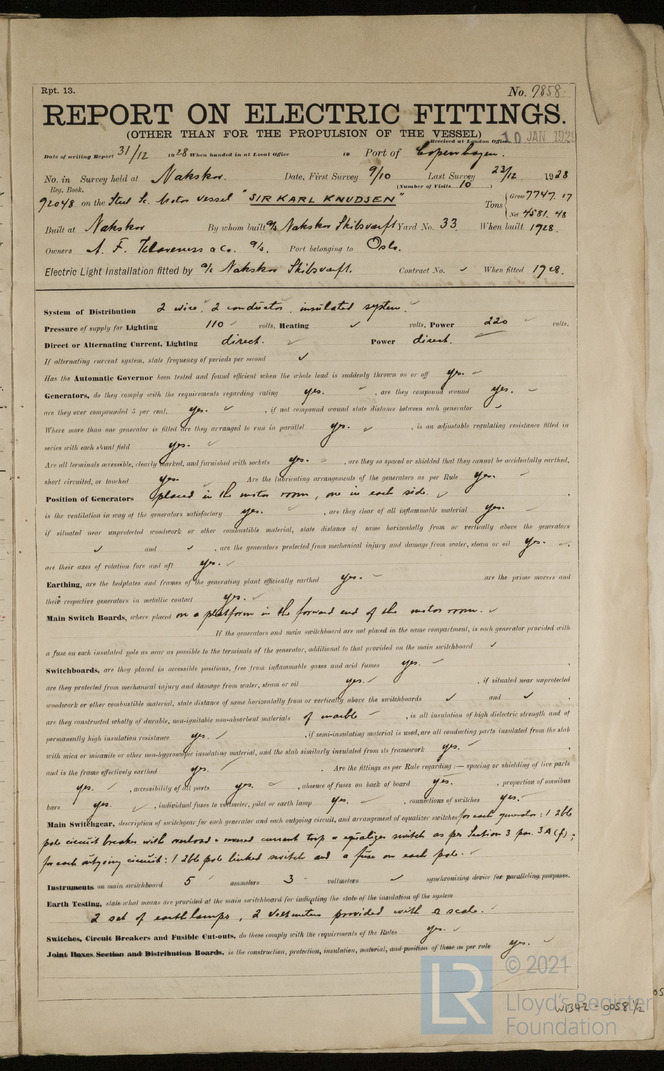 Rpt. 13.
No. 7858.
REPORT ON ELECTRIC FITTINGS.
(OTHER THAN FOR THE PROPULSION OF THE VESSEL)
Received at London Office 10 JAN 1929
Date of writing Report 31/12 1928 When handed in at Local Office 19 Port of Copenhagen.
No. in Survey held at Nakskov. Date, First Survey 9/10 Last Survey 22/12 1928
Reg. Book. (Number of Visits 10)
92048 on the Steel Sc. Motor vessel "SIR KARL KNUDSEN" Tons Gross 7747.17
Net 4581.48
Built at Nakskov By whom built A/S Nakskov Skibsvaerft Yard No. 33 When built 1928.
Owners A. F. Klaveness & Co. A/S. Port belonging to Oslo.
Electric Light Installation fitted by A/S Nakskov Skibsvaerft. Contract No. ✓ When fitted 1928.
System of Distribution 2 wire. 2 conductor insulated system.
Pressure of supply for Lighting 110 volts, Heating ✓ volts, Power 220 volts.
Direct or Alternating Current, Lighting direct. Power direct.
If alternating current system, state frequency of periods per second ✓
Has the Automatic Governor been tested and found efficient when the whole load is suddenly thrown on or off yes.
Generators, do they comply with the requirements regarding rating yes. , are they compound wound yes.
are they over compounded 5 per cent. yes. , if not compound wound state distance between each generator ✓
Where more than one generator is fitted are they arranged to run in parallel yes. , is an adjustable regulating resistance fitted in
series with each shunt field yes.
Are all terminals accessible, clearly marked, and furnished with sockets yes. , are they so spaced or shielded that they cannot be accidentally earthed,
short circuited, or touched yes. Are the lubricating arrangements of the generators as per Rule yes.
Position of Generators placed in the motor room, one in each side.
is the ventilation in way of the generators satisfactory yes. , are they clear of all inflammable material yes.
if situated near unprotected woodwork or other combustible material, state distance of same horizontally from or vertically above the generators
✓ and ✓ , are the generators protected from mechanical injury and damage from water, steam or oil yes.
are their axes of rotation fore and aft yes.
Earthing, are the bedplates and frames of the generating plant efficiently earthed yes. are the prime movers and
their respective generators in metallic contact yes.
Main Switch Boards, where placed on a platform in the forward end of the motor room.
If the generators and main switchboard are not placed in the same compartment, is each generator provided with
a fuse on each insulated pole as near as possible to the terminals of the generator, additional to that provided on the main switchboard ✓
Switchboards, are they placed in accessible positions, free from inflammable gases and acid fumes yes.
are they protected from mechanical injury and damage from water, steam or oil yes. , if situated near unprotected
woodwork or other combustible material, state distance of same horizontally from or vertically above the switchboards ✓ and ✓
are they constructed wholly of durable, non-ignitable non-absorbent materials of marble , is all insulation of high dielectric strength and of
permanently high insulation resistance yes. , if semi-insulating material is used, are all conducting parts insulated from the slab
with mica or micanite or other non-hygroscopic insulating material, and the slab similarly insulated from its framework yes.
and is the frame effectively earthed yes. Are the fittings as per Rule regarding :— spacing or shielding of live parts
yes. , accessibility of all parts yes. , absence of fuses on back of board yes. , proportion of omnibus
bars yes. , individual fuses to voltmeter, pilot or earth lamp yes. , connections of switches yes.
Main Switchgear, description of switchgear for each generator and each outgoing circuit, and arrangement of equalizer switches for each generator: 1 2ble
pole circuit breaker with overload & reversed current trip & equalizer switch as per Section 3 par. 3A (f);
for each outgoing circuit: 1 2ble pole linked switch and a fuse on each pole.
Instruments on main switchboard 5 ammeters 3 voltmeters ✓ synchronizing device for paralleling purposes.
Earth Testing, state what means are provided at the main switchboard for indicating the state of the insulation of the system
2 set of earth lamps, 2 voltmeters provided with Ω scale.
Switches, Circuit Breakers and Fusible Cut-outs, do these comply with the requirements of the Rules yes.
Joint Boxes Section and Distribution Boards, is the construction, protection, insulation, material, and position of these as per rule yes.
LR © 2021
Lloyd's Register
Foundation
W1342-0058 1/2